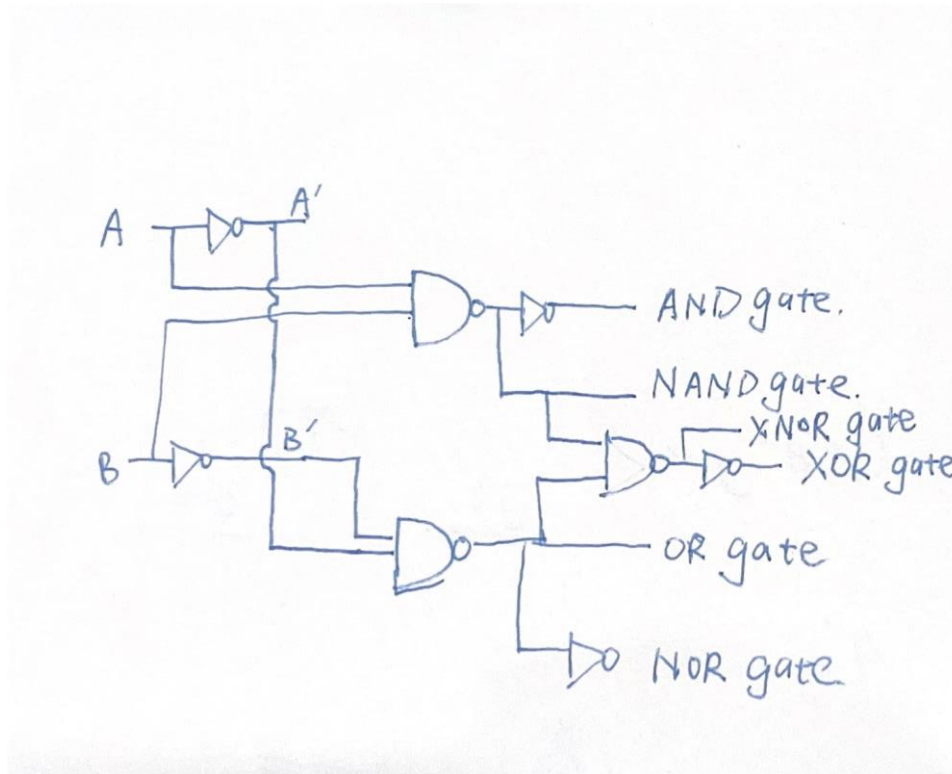 A
A'
AND gate.
NAND gate.
XNOR gate
B
B'
XOR gate
OR gate
NOR gate